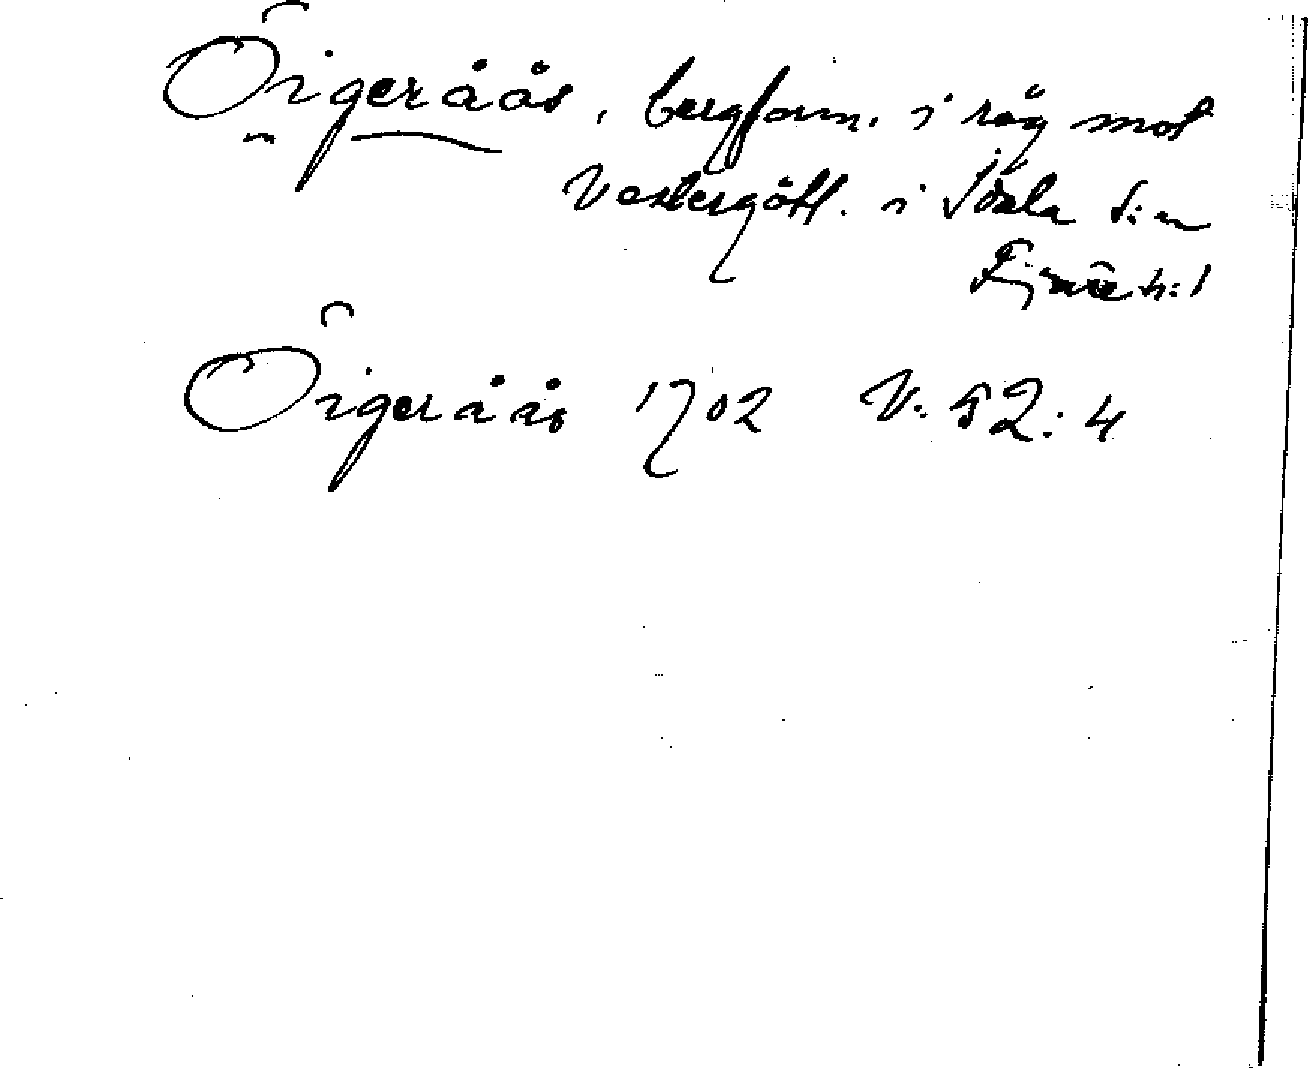 Öigeråås, bergform. i råg mot
Vestergötl. i Idala s:n
Fjäre h:d
Öigeråås 1702 V. 52:4